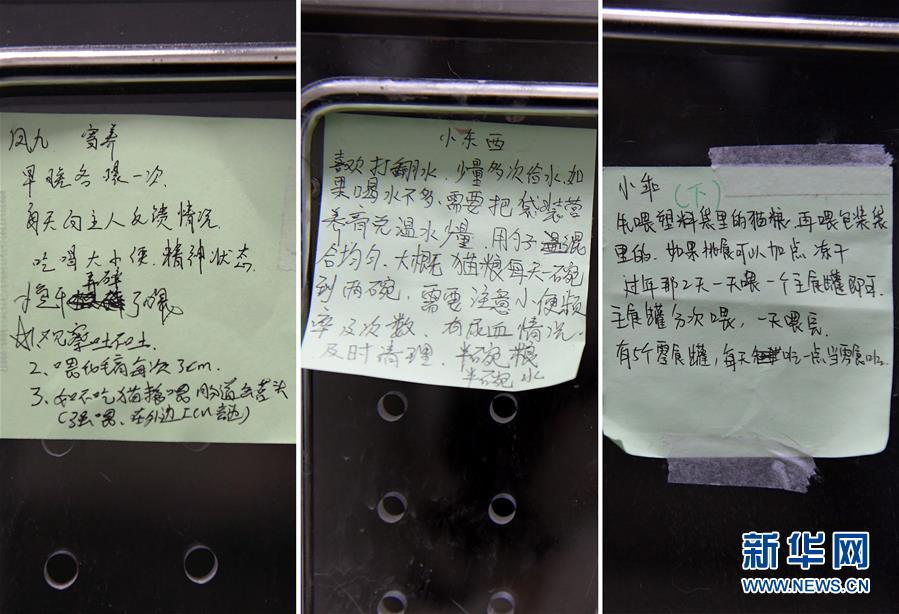 凤九 寄养
早晚各喂一次.
每天向主人反馈情况
吃喝大小便.精神状态.
弄碎
了喂
观察吐不吐.
2、喂化毛膏每次3cm.
3、如不吃猫粮喂肠道罐头
小东西
喜欢打翻水.少量多次给水.如
果喝水不多.需要把袋装营
养膏兑温水少量.用勺子混
合均匀.大概猫粮每天一碗
到两碗,需要注意小便频
率及次数.有尿血情况
及时清理.半碗粮
半碗水
小乖 (下)
先喂塑料袋里的猫粮.再喂包装袋
里的.如果挑食可以加点 冻干
过年那2天一天喂一个主食罐即可.
主食罐分次喂,一天喂完.
有5个零食罐,每天吃一点当零食吃.
新华网
WWW.NEWS.CN